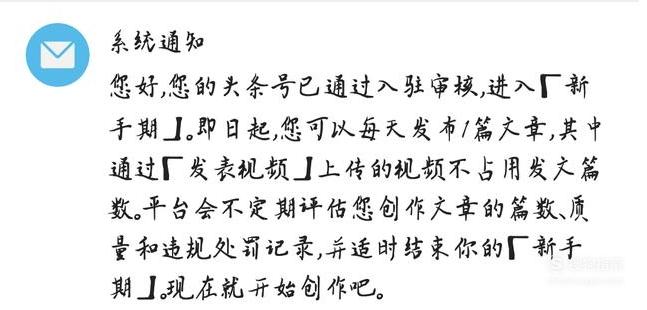 系统通知
您好,您的头条号已通过入驻审核,进入「新
手期」。即日起,您可以每天发布1篇文章,其中
通过「发表视频」上传的视频不占用发文篇
数。平台会不定期评估您创作文章的篇数、质
量和违规处罚记录,并适时结束你的「新手
期」。现在就开始创作吧。